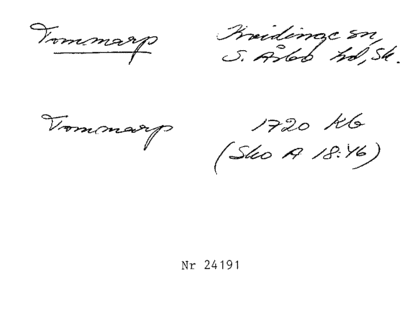 Tommarp Kvidinge sn,
S. Åsbo hd, Sk.
Tommarp 1720 Kb
(Sko A 18:46)
Nr 24191